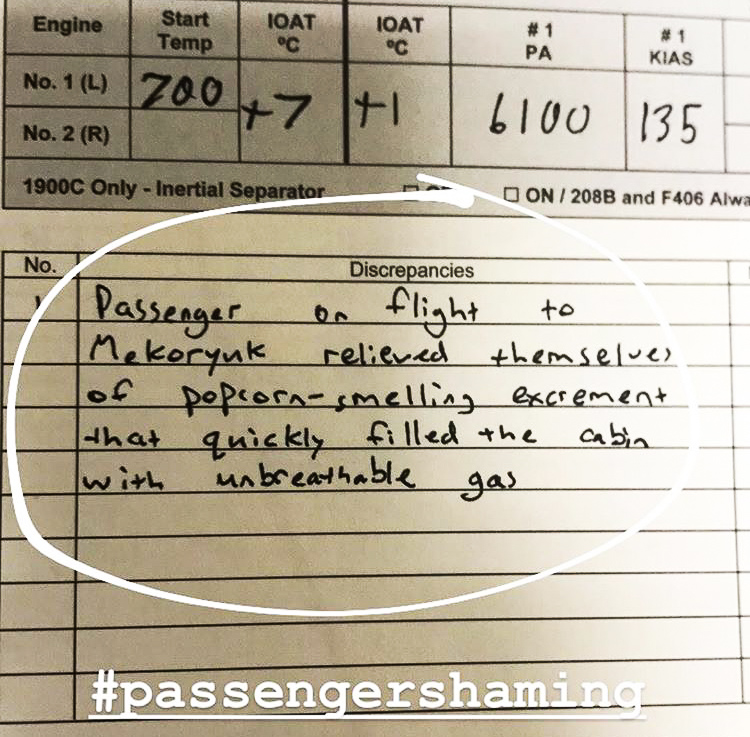 Engine Start Temp IOAT °C IOAT °C # 1 PA # 1 KIAS
No. 1 (L) 700 +7 +1 6100 135
No. 2 (R)
1900C Only - Inertial Separator ON / 208B and F406 Alwa
No. Discrepancies
1 Passenger on flight to
Mekoryuk relieved themselves
of popcorn-smelling excrement
that quickly filled the cabin
with unbreathable gas
#passengershaming